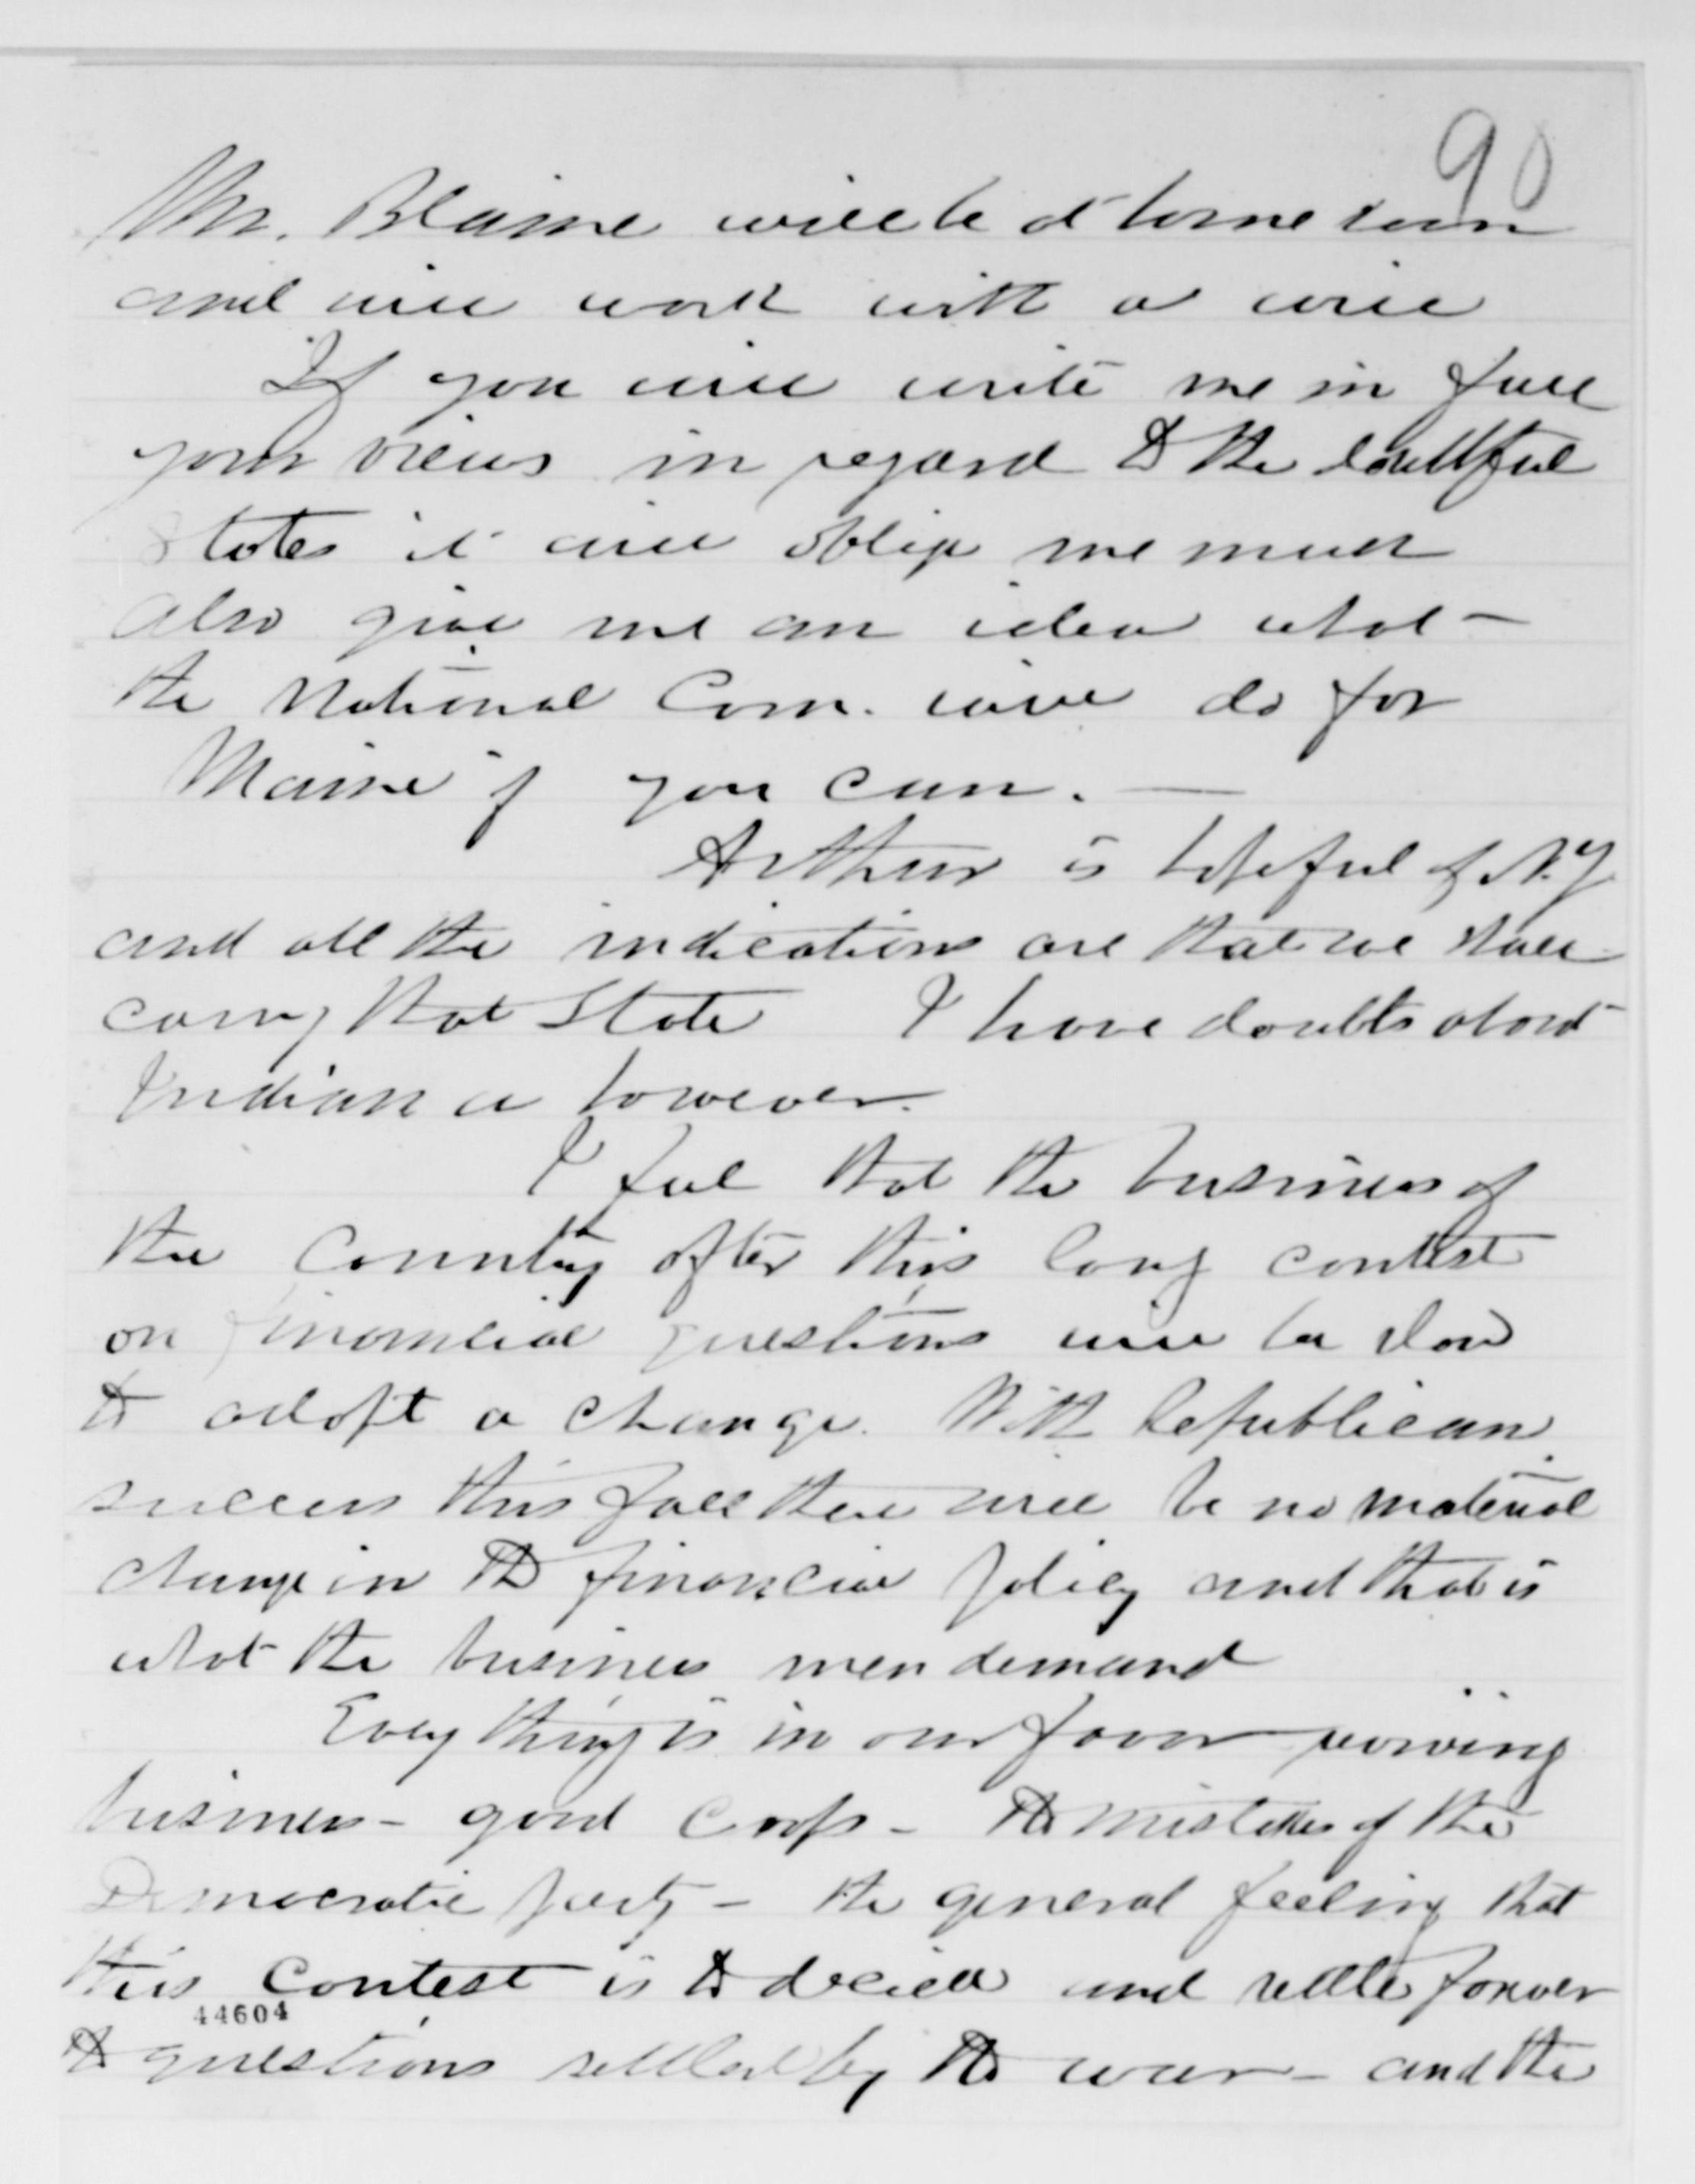 90
Mr. Blaine will be at home soon
and will work with a will
If you will write me in full
your views in regard to the doubtful
States it will oblige me much
Also give me an idea what
the National Com. will do for
Maine if you can. —
Arthur is hopeful of N.Y
and all the indications are that we shall
carry that State I have doubts about
Indiana however.
I feel that the business of
the Country after this long contest
on financial questions will be slow
to adopt a change. With Republican
success this fall there will be no material
change in the financial policy and that is
what the business men demand
Every thing is in our favor reviving
business - good crops - the mistakes of the
Democratic party - the general feeling that
this Contest is to decide and settle forever
44604
the questions settled by the war - and the